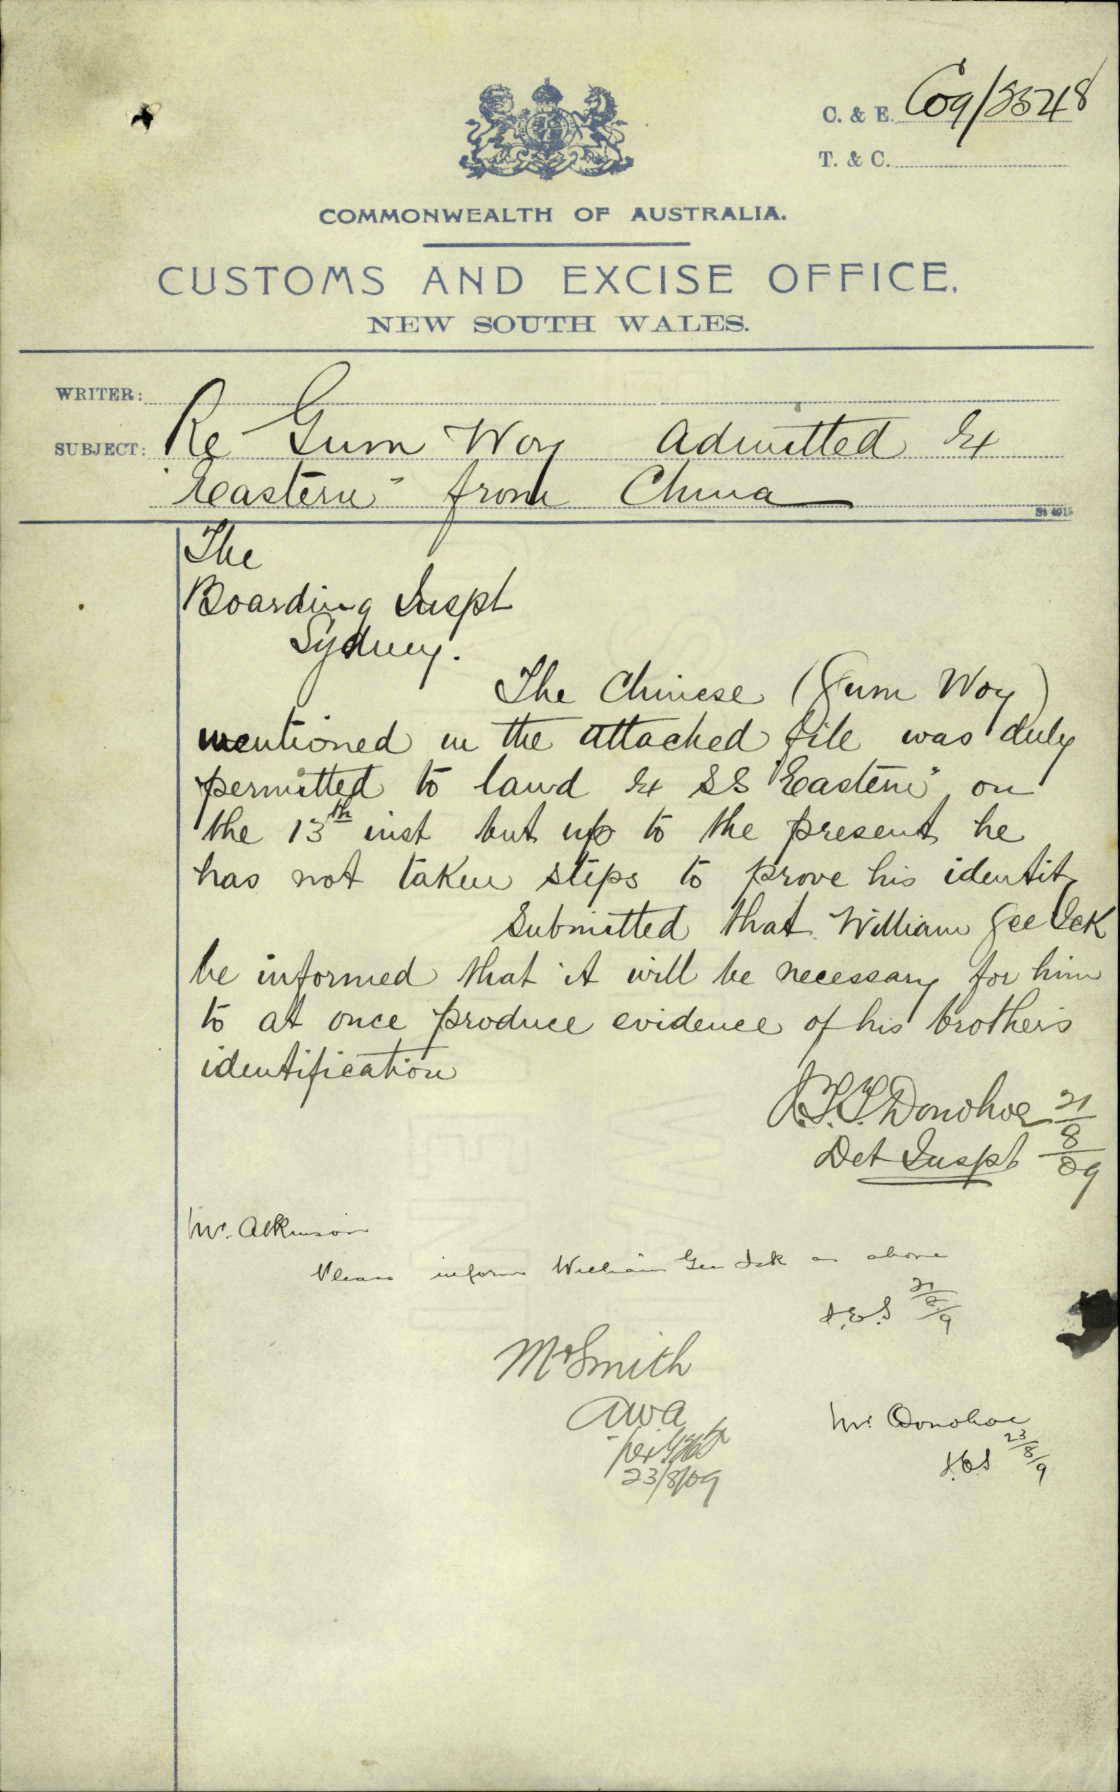 C. & E. C09/8548
T. & C.
COMMONWEALTH OF AUSTRALIA.
CUSTOMS AND EXCISE OFFICE.
NEW SOUTH WALES.
WRITER:
SUBJECT: Re Gum Woy Admitted Ex
"Eastern" from China
The
Boarding Inspt
Sydney.
The Chinese (Gum Woy)
mentioned in the attached file was duly
permitted to land Ex SS "Eastern" on
the 13th inst but up to the present he
has not taken steps to prove his identity
Submitted that William Gee Ick
be informed that it will be necessary for him
to at once produce evidence of his brothers
identification
J.T.T. Donohoe 21/8/09
Det Inspt
Mr. Atkinson
Please inform William Gee Ick as above
21/8/9
Mr Smith
AWA
per
23/8/09
Mr. Donohoe
23/8/9